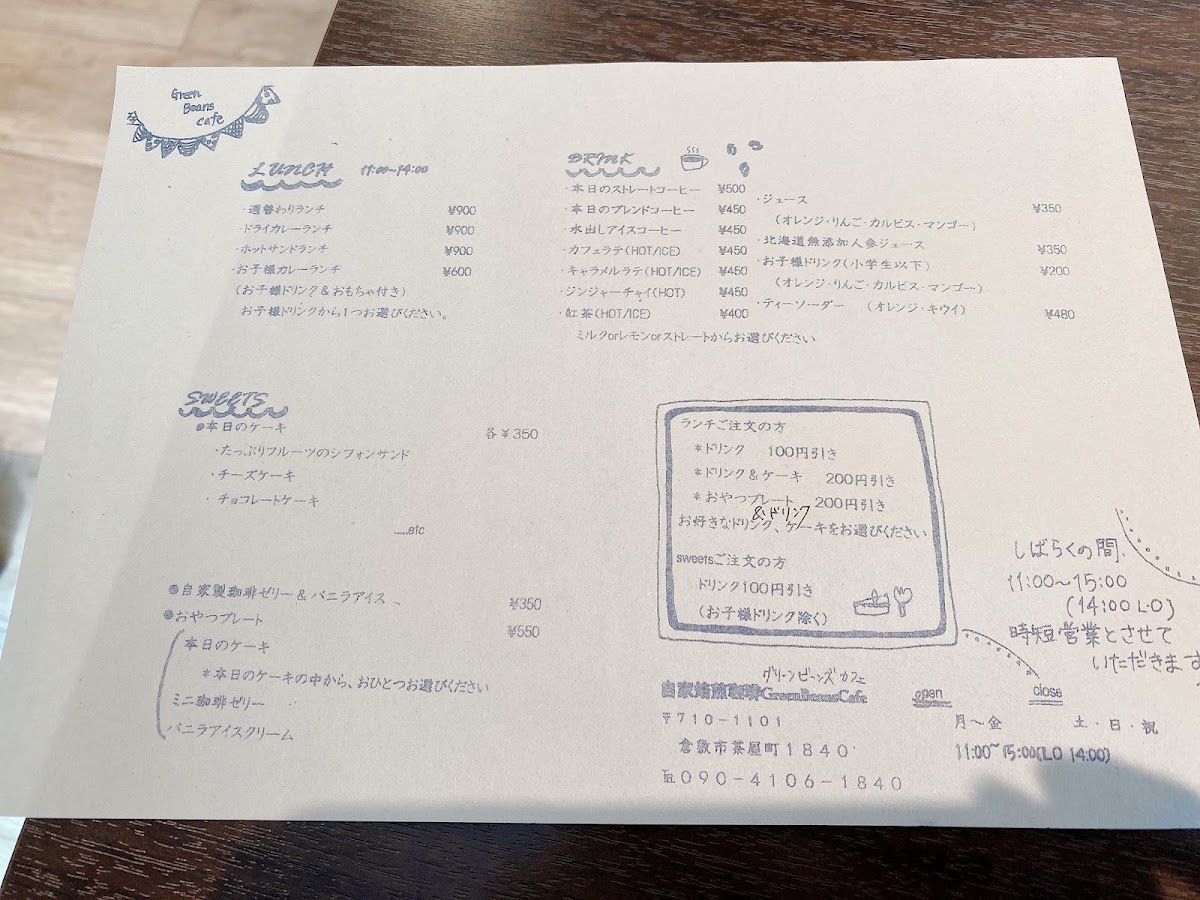 Green
Beans
cafe
LUNCH 11:00~14:00
・週替わりランチ ¥900
・ドライカレーランチ ¥900
・ホットサンドランチ ¥900
・お子様カレーランチ ¥600
(お子様ドリンク&おもちゃ付き)
お子様ドリンクから1つお選びください。
DRINK
・本日のストレートコーヒー ¥500
・本日のブレンドコーヒー ¥450
・水出しアイスコーヒー ¥450
・カフェラテ(HOT/ICE) ¥450
・キャラメルラテ(HOT/ICE) ¥450
・ジンジャーチャイ(HOT) ¥450
・紅茶(HOT/ICE) ¥400
ミルクorレモンorストレートからお選びください
・ジュース ¥350
(オレンジ・りんご・カルピス・マンゴー)
・北海道無添加人参ジュース ¥350
・お子様ドリンク(小学生以下) ¥200
(オレンジ・りんご・カルピス・マンゴー)
・ティーソーダー (オレンジ・キウイ) ¥480
SWEETS
●本日のケーキ 各¥350
・たっぷりフルーツのシフォンサンド
・チーズケーキ
・チョコレートケーキ
.....etc
●自家製珈琲ゼリー&バニラアイス ¥350
●おやつプレート ¥550
本日のケーキ
*本日のケーキの中から、おひとつお選びください
ミニ珈琲ゼリー
バニラアイスクリーム
ランチご注文の方
*ドリンク 100円引き
*ドリンク&ケーキ 200円引き
*おやつプレート 200円引き
&ドリンク
お好きなドリンク、ケーキをお選びください
sweetsご注文の方
ドリンク100円引き
(お子様ドリンク除く)
しばらくの間、
11:00~15:00
(14:00 L.O)
時短営業とさせて
いただきます
グリーンビーンズ カフェ
自家焙煎珈琲GreenBeansCafe
〒710-1101
倉敷市茶屋町1840
℡090-4106-1840
open close
月~金 土・日・祝
11:00~15:00(LO 14:00)